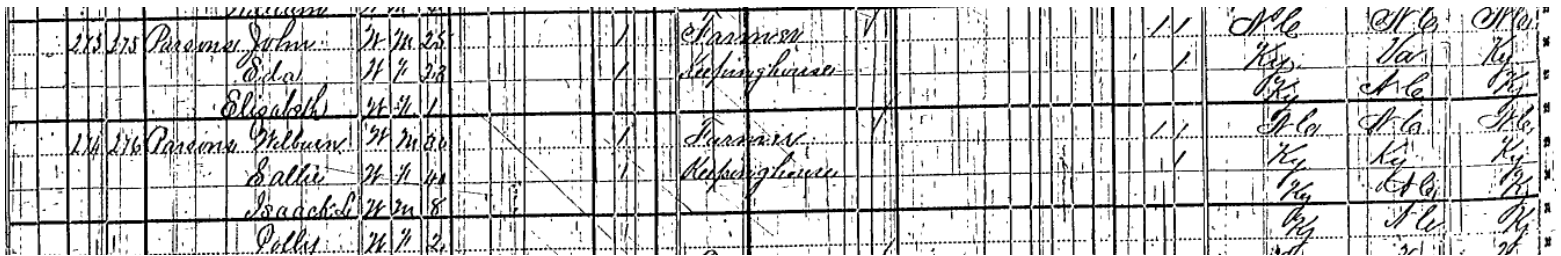 273 275 Parsons John W M 25 1 Farmer 1 1 N C N C N C
Eda W F 23 1 Keepinghouse 1 Ky Va Ky
Elizabeth W F 1 Ky N C Ky
274 276 Parsons Wilburn W M 30 1 Farmer 1 1 N C N C N C
Sallie W F 40 1 Keepinghouse 1 Ky Ky Ky
Isaack L W M 8 Ky N C Ky
Polly W F 2 Ky N C Ky